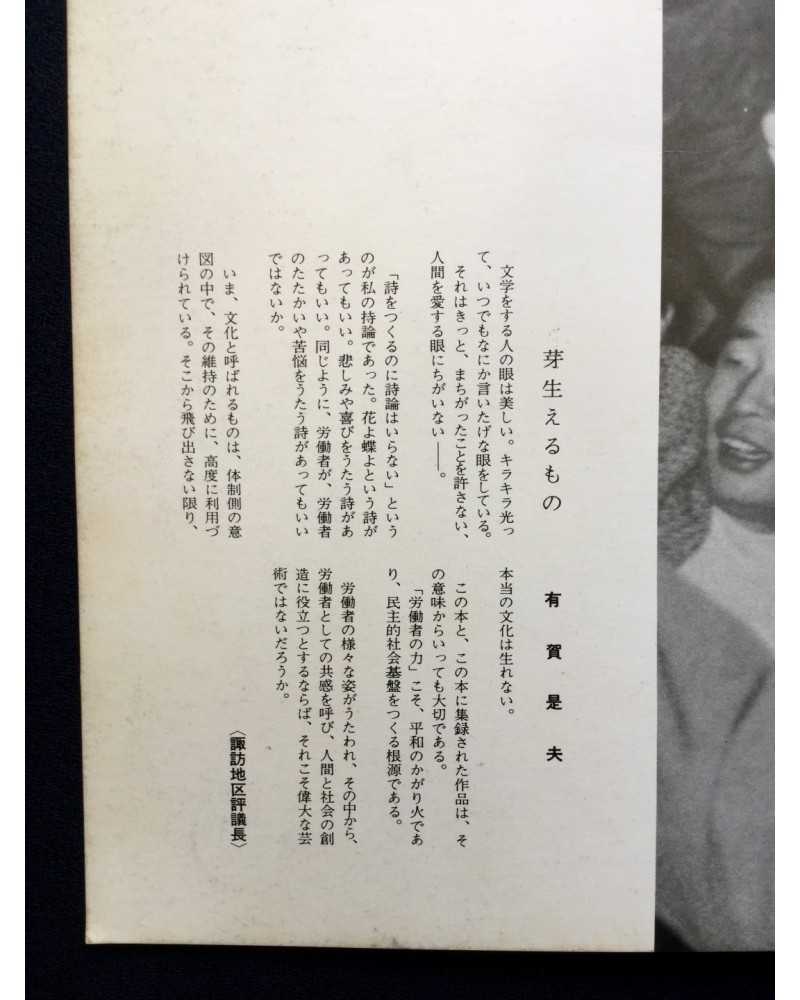 芽生えるもの
有賀是夫
文学をする人の眼は美しい。キラキラ光っ
て、いつでもなにか言いたげな眼をしている。
それはきっと、まちがったことを許さない、
人間を愛する眼にちがいない――。
「詩をつくるのに詩論はいらない」という
のが私の持論であった。花よ蝶よという詩が
あってもいい。悲しみや喜びをうたう詩があ
ってもいい。同じように、労働者が、労働者
のたたかいや苦悩をうたう詩があってもいい
ではないか。
いま、文化と呼ばれるものは、体制側の意
図の中で、その維持のために、高度に利用づ
けられている。そこから飛び出さない限り、
本当の文化は生れない。
この本と、この本に集録された作品は、そ
の意味からいっても大切である。
「労働者の力」こそ、平和のかがり火であ
り、民主的社会基盤をつくる根源である。
労働者の様々な姿がうたわれ、その中から、
労働者としての共感を呼び、人間と社会の創
造に役立つとするならば、それこそ偉大な芸
術ではないだろうか。
〈諏訪地区評議長〉